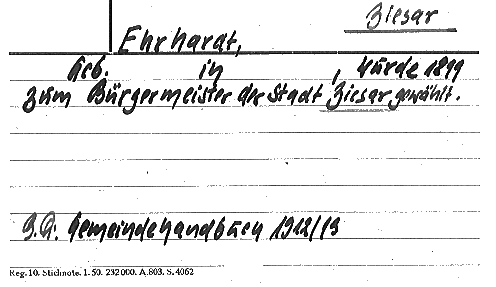 Ziesar
Ehrhardt,
Geb. in , wurde 1899
zum Bürgermeister der Stadt Ziesar gewählt.
Gemeindehandbuch 1912/13
Reg. 10. Stichnote. 1. 50. 232000. A. 803. S. 4062